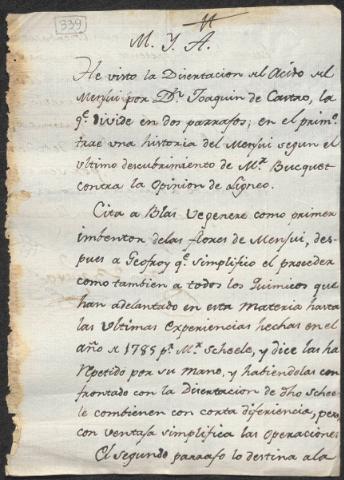 339
M. Y. A.
He visto la Disertacion del Acido del
Menjui por Dn. Joaquin de Castro, la
qe. divide en dos parrafos; en el primo.
trae una historia del Menjui segun el
ultimo descubrimiento de Mr. Bucquet
contra la Opinion de
Cita a Blas Vegenere como primer
imbentor de las flores de Menjui, des-
pues a Geofroy qe. simplifico el proceder
como tambien a todos los Quimicos que
han adelantado en esta Materia hasta
las Ultimas Experiencias hechas en el
año de 1785 pr. Mr. Scheele, y dice las ha
Repetido por su mano, y habiendolas con
frontado con la Disertacion de dho Schee-
le combienen con corta diferiencia, pero,
con ventaja simplifica las operaciones
El segundo parrafo lo destina a la